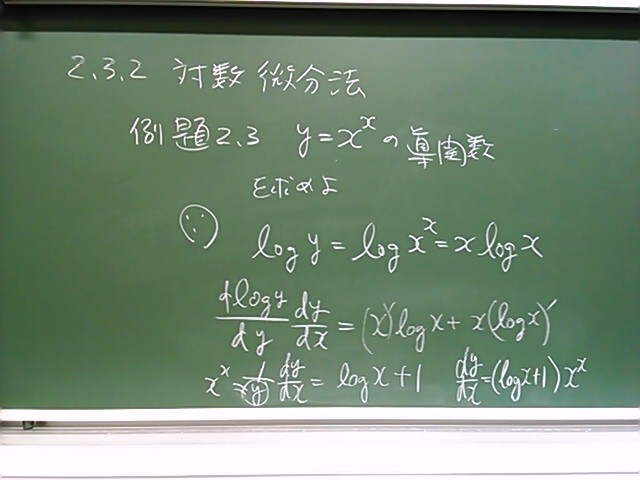 2.3.2 対数微分法
例題2.3 y=x^x の導関数
を求めよ
log y = log x^x = x log x
dlogy/dy dy/dx = (x)' log x + x(log x)'
x^x = 1/y dy/dx = log x + 1 dy/dx = (log x + 1) x^x